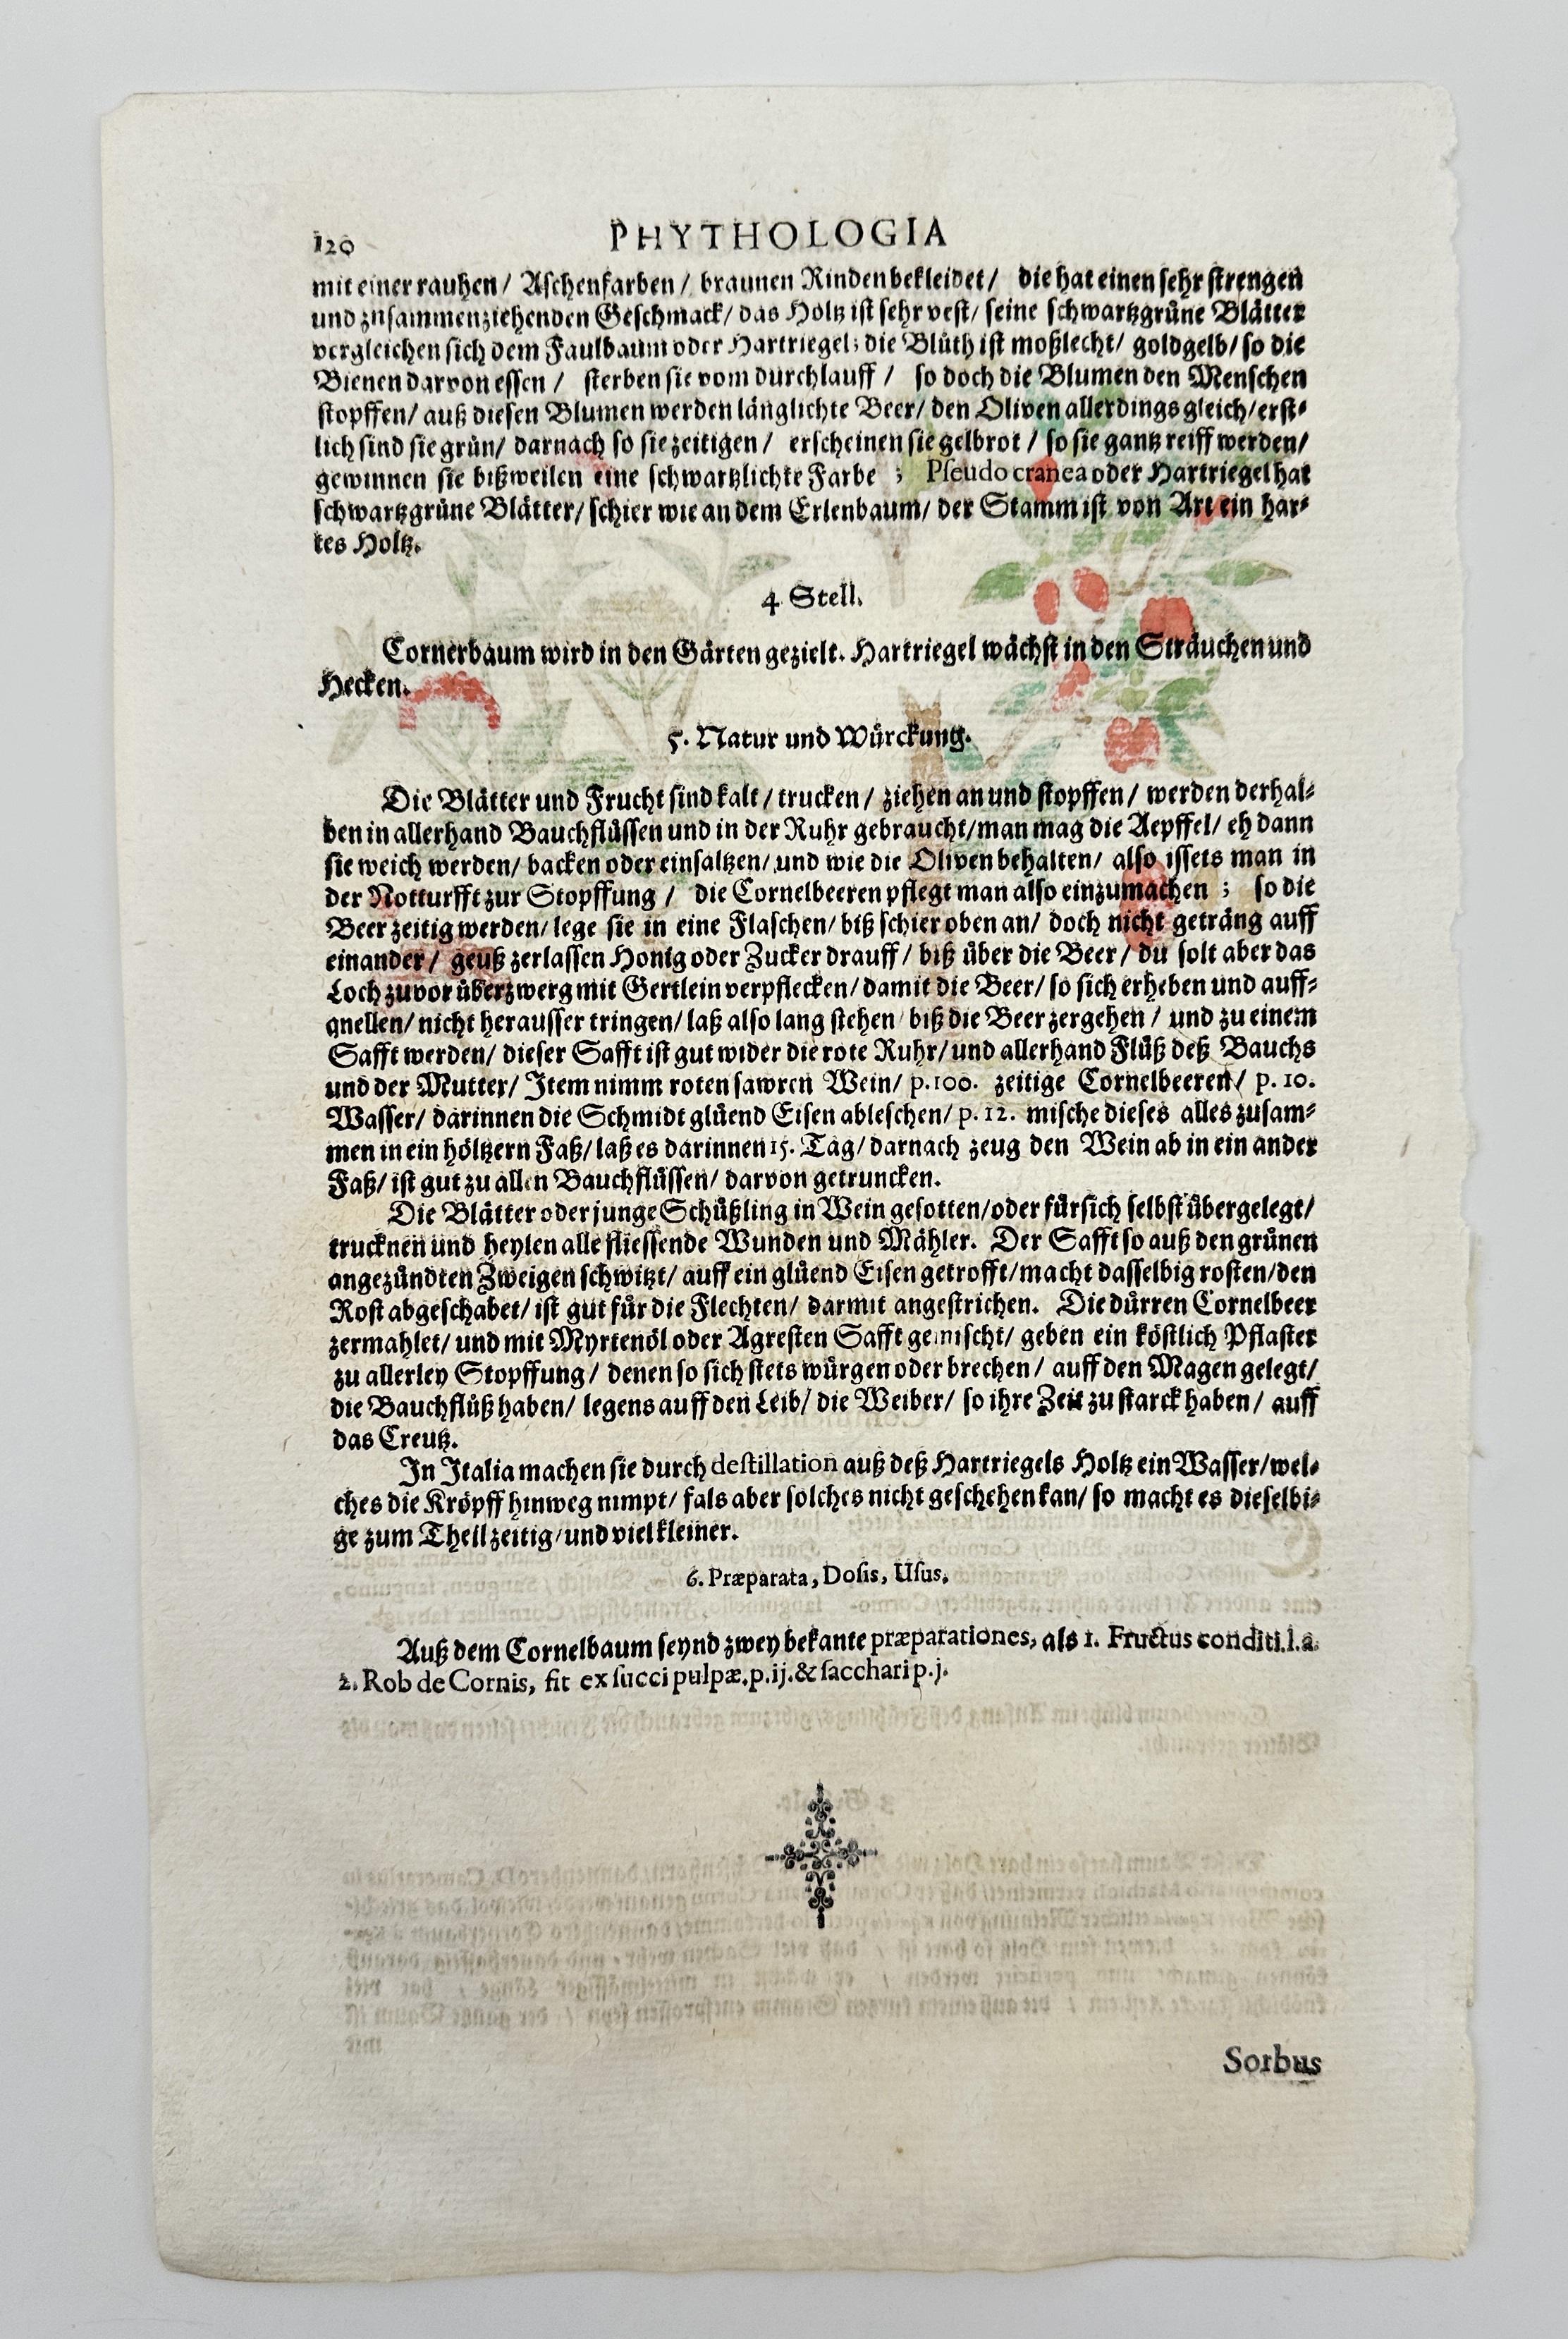 120 PHYTHOLOGIA
mit einer rauhen / Aschenfarben / braunen Rinden bekleidet / die hat einen sehr strengen
und zusammenziehenden Geschmack / das Holtz ist sehr vest / seine schwartzgrüne Blätter
vergleichen sich dem Faulbaum oder Hartriegel; die Blüth ist moßlecht / goldgelb / so die
Bienen darvon essen / sterben sie vom durchlauff / so doch die Blumen den Menschen
stopffen / auß diesen Blumen werden länglichte Beer / den Oliven allerdings gleich / erst-
lich sind sie grün / darnach so sie zeitigen / erscheinen sie gelbrot / so sie gantz reiff werden /
gewinnen sie bißweilen eine schwartzlichte Farbe ; Pseudo cranea oder Hartriegel hat
schwartzgrüne Blätter / schier wie an dem Erlenbaum / der Stamm ist von Art ein har-
tes Holtz.
4 Stell.
Cornerbaum wird in den Gärten gezielt. Hartriegel wächst in den Sträuchen und
Hecken.
5. Natur und Würckung.
Die Blätter und Frucht sind kalt / trucken / ziehen an und stopffen / werden derhal-
ben in allerhand Bauchflüssen und in der Ruhr gebraucht / man mag die Aepffel / eh dann
sie weich werden / backen oder einsaltzen / und wie die Oliven behalten / also issets man in
der Notturfft zur Stopffung / die Cornelbeeren pflegt man also einzumachen ; so die
Beer zeitig werden / lege sie in eine Flaschen / biß schier oben an / doch nicht geträng auff
einander / geuß zerlassen Honig oder Zucker drauff / biß über die Beer / du solt aber das
Loch zuvor überzwerg mit Gertlein verpflecken / damit die Beer / so sich erheben und auff-
qnellen / nicht herausser tringen / laß also lang stehen / biß die Beer zergehen / und zu einem
Safft werden / dieser Safft ist gut wider die rote Ruhr / und allerhand Flüß deß Bauchs
und der Mutter / Item nimm roten sawren Wein / p. 100. zeitige Cornelbeeren / p. 10.
Wasser / darinnen die Schmidt glüend Eisen ableschen / p. 12. mische dieses alles zusam-
men in ein höltzern Faß / laß es darinnen 15. Tag / darnach zeug den Wein ab in ein ander
Faß / ist gut zu allen Bauchflüssen / darvon getruncken.
Die Blätter oder junge Schüßling in Wein gesotten / oder für sich selbst übergelegt /
trucknen und heylen alle fliessende Wunden und Mähler. Der Safft so auß den grünen
angezündten Zweigen schwitzt / auff ein glüend Eisen getrofft / macht dasselbig rosten / den
Rost abgeschabet / ist gut für die Flechten / darmit angestrichen. Die dürren Cornelbeer
zermahlet / und mit Myrtenöl oder Agresten Safft gemischt / geben ein köstlich Pflaster
zu allerley Stopffung / denen so sich stets würgen oder brechen / auff den Magen gelegt /
die Bauchflüß haben / legens auff den Leib / die Weiber / so ihre Zeit zu starck haben / auff
das Creutz.
In Italia machen sie durch destillation auß deß Hartriegels Holtz ein Wasser / wel-
ches die Kröpff hinweg nimpt / fals aber solches nicht geschehen kan / so macht es dieselbi-
ge zum Theil zeitig / und viel kleiner.
6. Præparata, Dosis, Usus.
Auß dem Cornelbaum seynd zwey bekante præparationes, als 1. Fructus conditi. l. a.
2. Rob de Cornis, fit ex succi pulpæ. p. ij. & sacchari p. j.
Sorbus